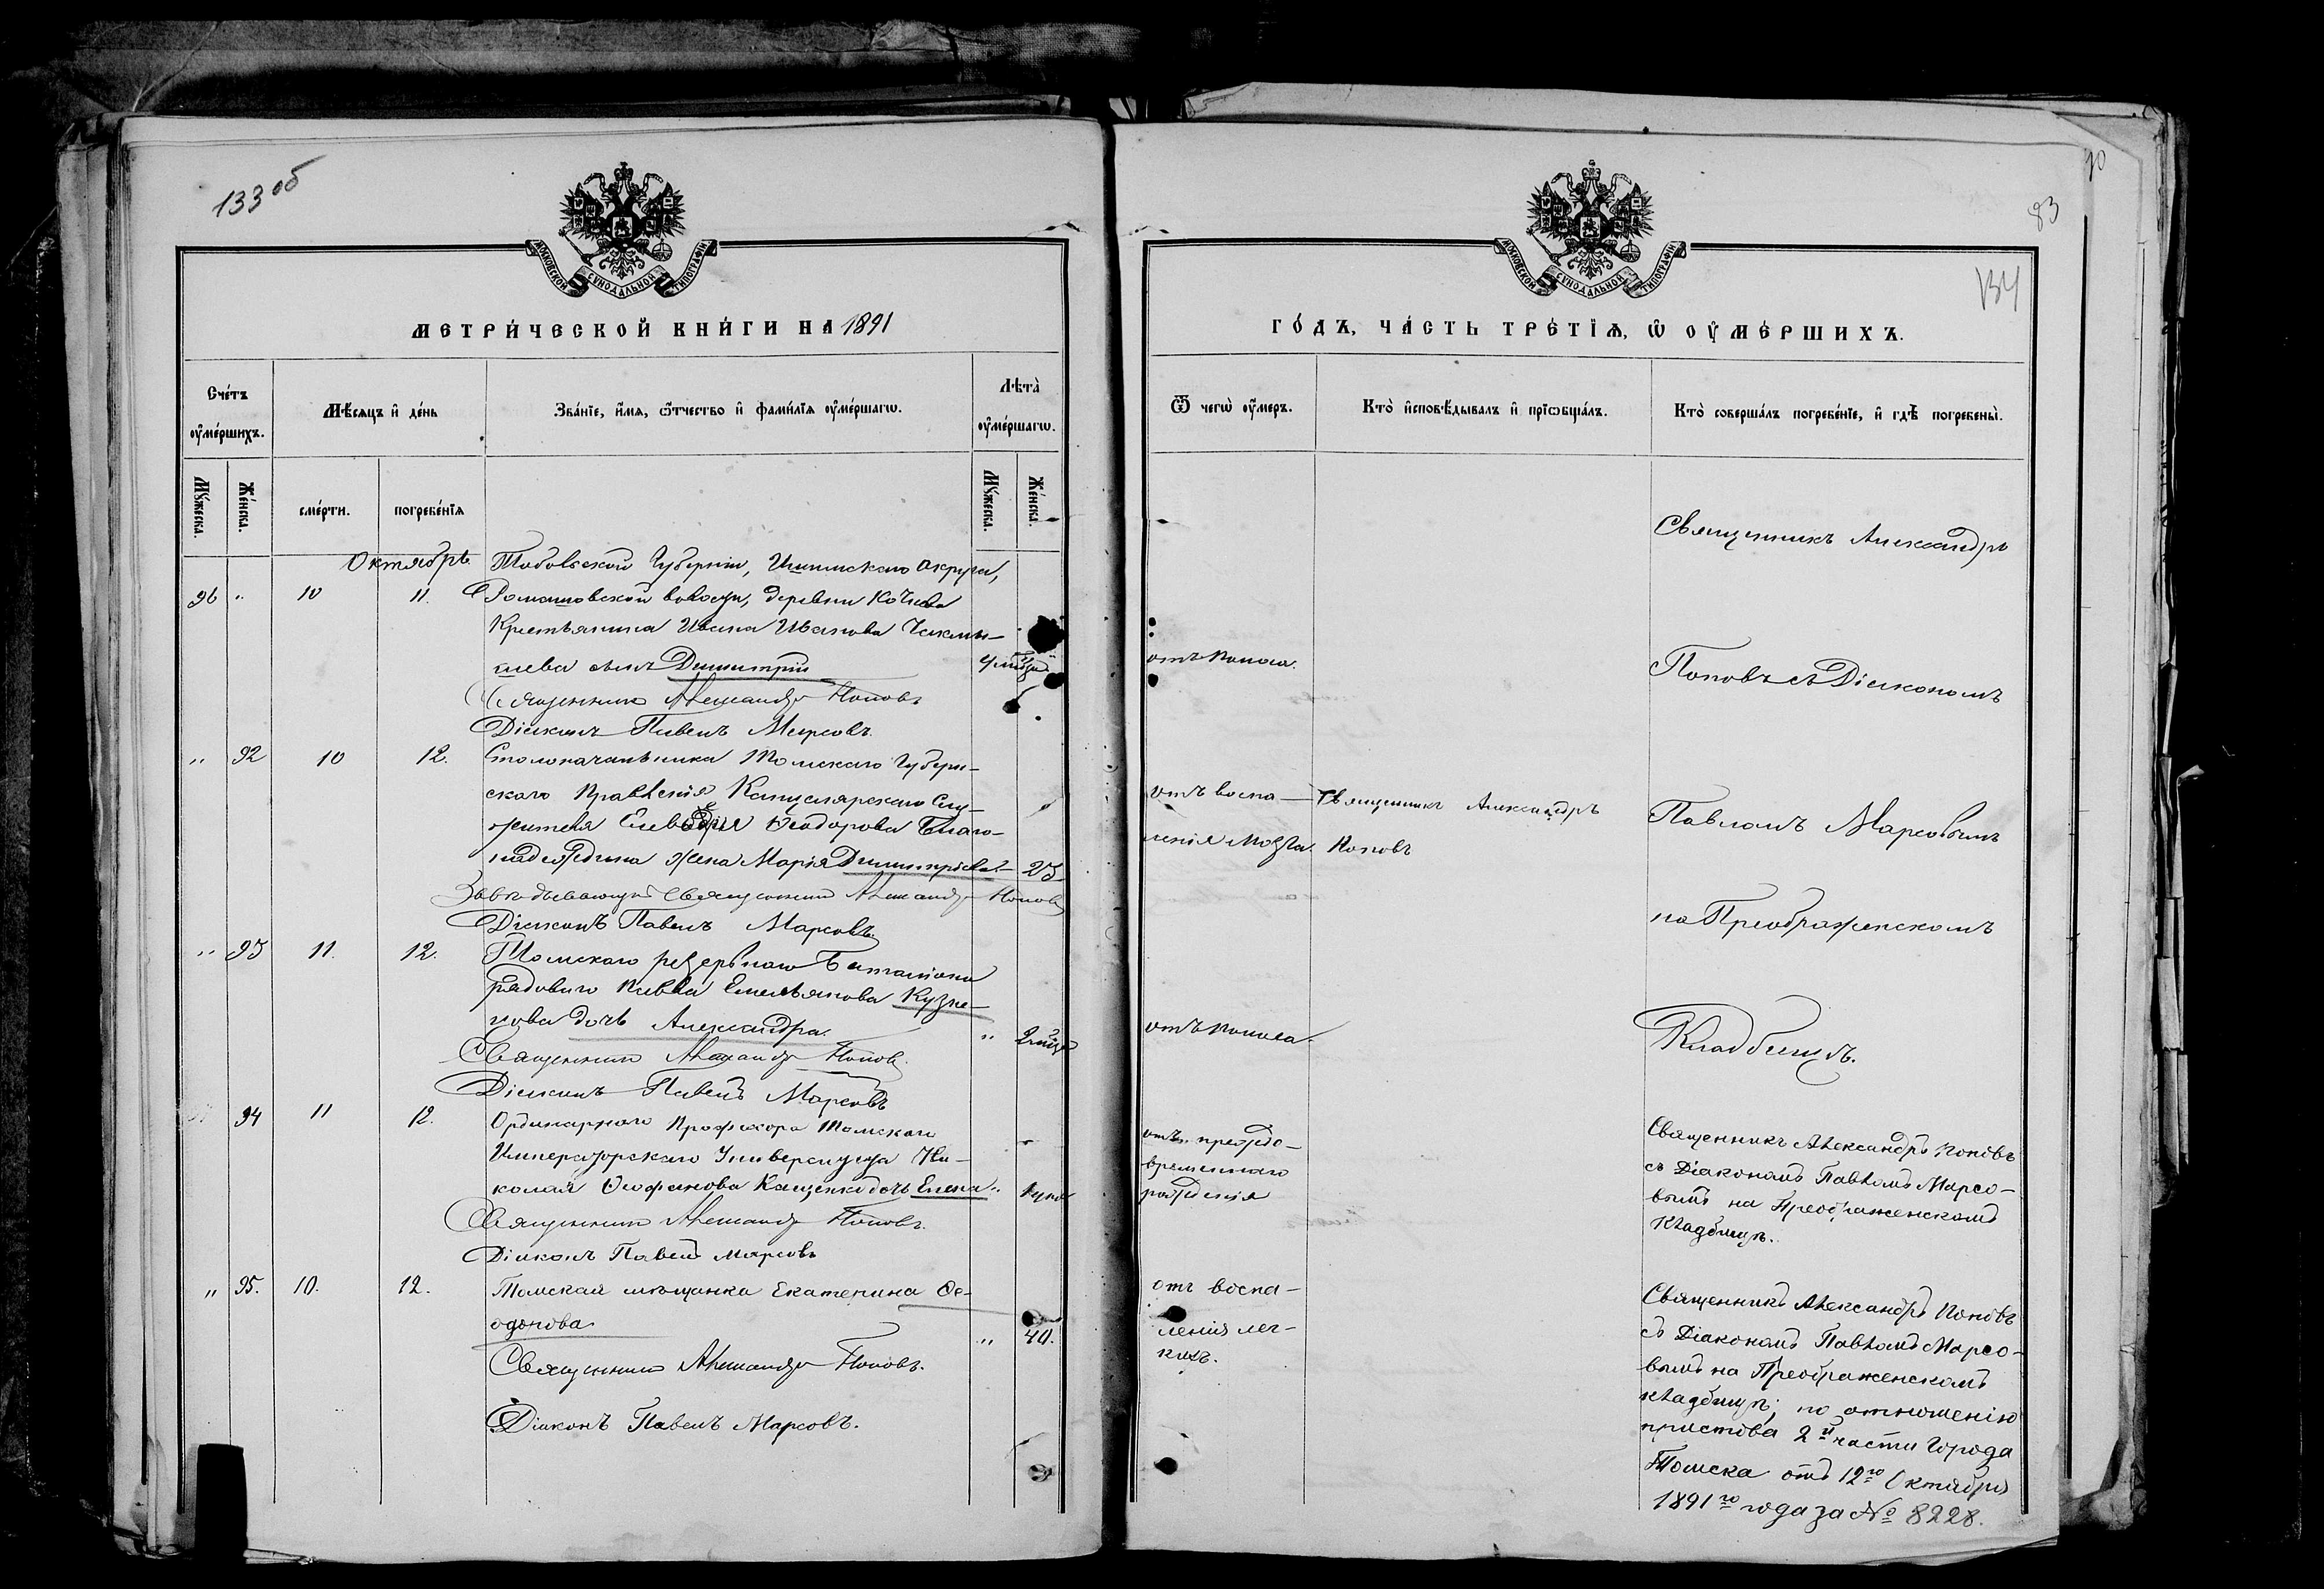 133 об
МОСКОВСКОЙ СУНОДАЛЬНОЙ ТИПОГРАФІИ
МЕТРИ́ЧЕСКОЙ КНИ́ГИ НА 1891
Сче́тъ ᲂу҆ме́ршихъ.
Мѣ́сяцъ и҆ де́нь
Зва́нїе, и҆́мя, ѻ҆́тчество и҆ фами́лїя ᲂу҆ме́ршагѡ.
Лѣ́та ᲂу҆ме́ршагѡ.
Мꙋ́жеска.
Же́нска.
сме́рти.
погребе́нїя
Мꙋ́жеска.
Же́нска.
Октябрь.
96 " 10 11.
Тобольской Губерніи, Ишимскаго Округа,
волости, деревни
Крестьянина Ивана Иванова
сынъ Димитрій
Священникъ Александръ Поповъ
Діаконъ Павелъ Марсовъ.
" 92 10 12.
Столоначальника Томскаго Губерн-
скаго Правленія Канцелярскаго Слу-
жителя Ѳеодорова Благо-
надеждина жена Марія Димитріева 25
Завѣдывающій Священникъ Александръ Поповъ
Діаконъ Павелъ Марсовъ.
" 93 11. 12.
Томскаго резервнаго Баталіона
рядоваго Емельянова Кузне-
цова дочь Александра. "
Священникъ Александръ Поповъ.
Діаконъ Павелъ Марсовъ
94 11 12.
Ординарнаго Профессора Томскаго
Императорскаго Университета Ни-
колая Ѳеофанова Кащенко дочь Елена "
Священникъ Александръ Поповъ.
Діаконъ Павелъ Марсовъ
" 95. 10. 12.
Томская мѣщанка Екатерина Ѳе-
одорова
" 40.
Священникъ Александръ Поповъ.
Діаконъ Павелъ Марсовъ.
90
83
134
МОСКОВСКОЙ СУНОДАЛЬНОЙ ТИПОГРАФІИ
ГО́ДЪ, ЧА́СТЬ ТРЕ́ТЇѦ, Ѡ҆ ОУ҆МЕ́РШИХЪ.
Ѿ чегѡ̀ ᲂу҆́меръ.
Кто̀ и҆сповѣ́дывалъ и҆ прїѡбща́лъ.
Кто̀ соверша́лъ погребе́нїе, и҆ гдѣ̀ погребены̀.
Священникъ Александръ
отъ поноса.
Поповъ съ Діакономъ
отъ воспа-
Священникъ Александръ
Павломъ Марсовымъ
ленія мозга.
Поповъ
на Преображенскомъ
отъ поноса.
Кладбищѣ.
отъ преждо-
временнаго
рожденія
Священникъ Александръ Поповъ
съ Діакономъ Павломъ Марсо-
вымъ на Преображенскомъ
кладбищѣ.
отъ воспа-
ленія лег-
кихъ.
Священникъ Александръ Поповъ
съ Діакономъ Павломъ Марсо-
вымъ на Преображенскомъ
кладбищѣ; по отношенію
пристова 2й части города
Томска отъ 12го Октября
1891го года за № 8228.